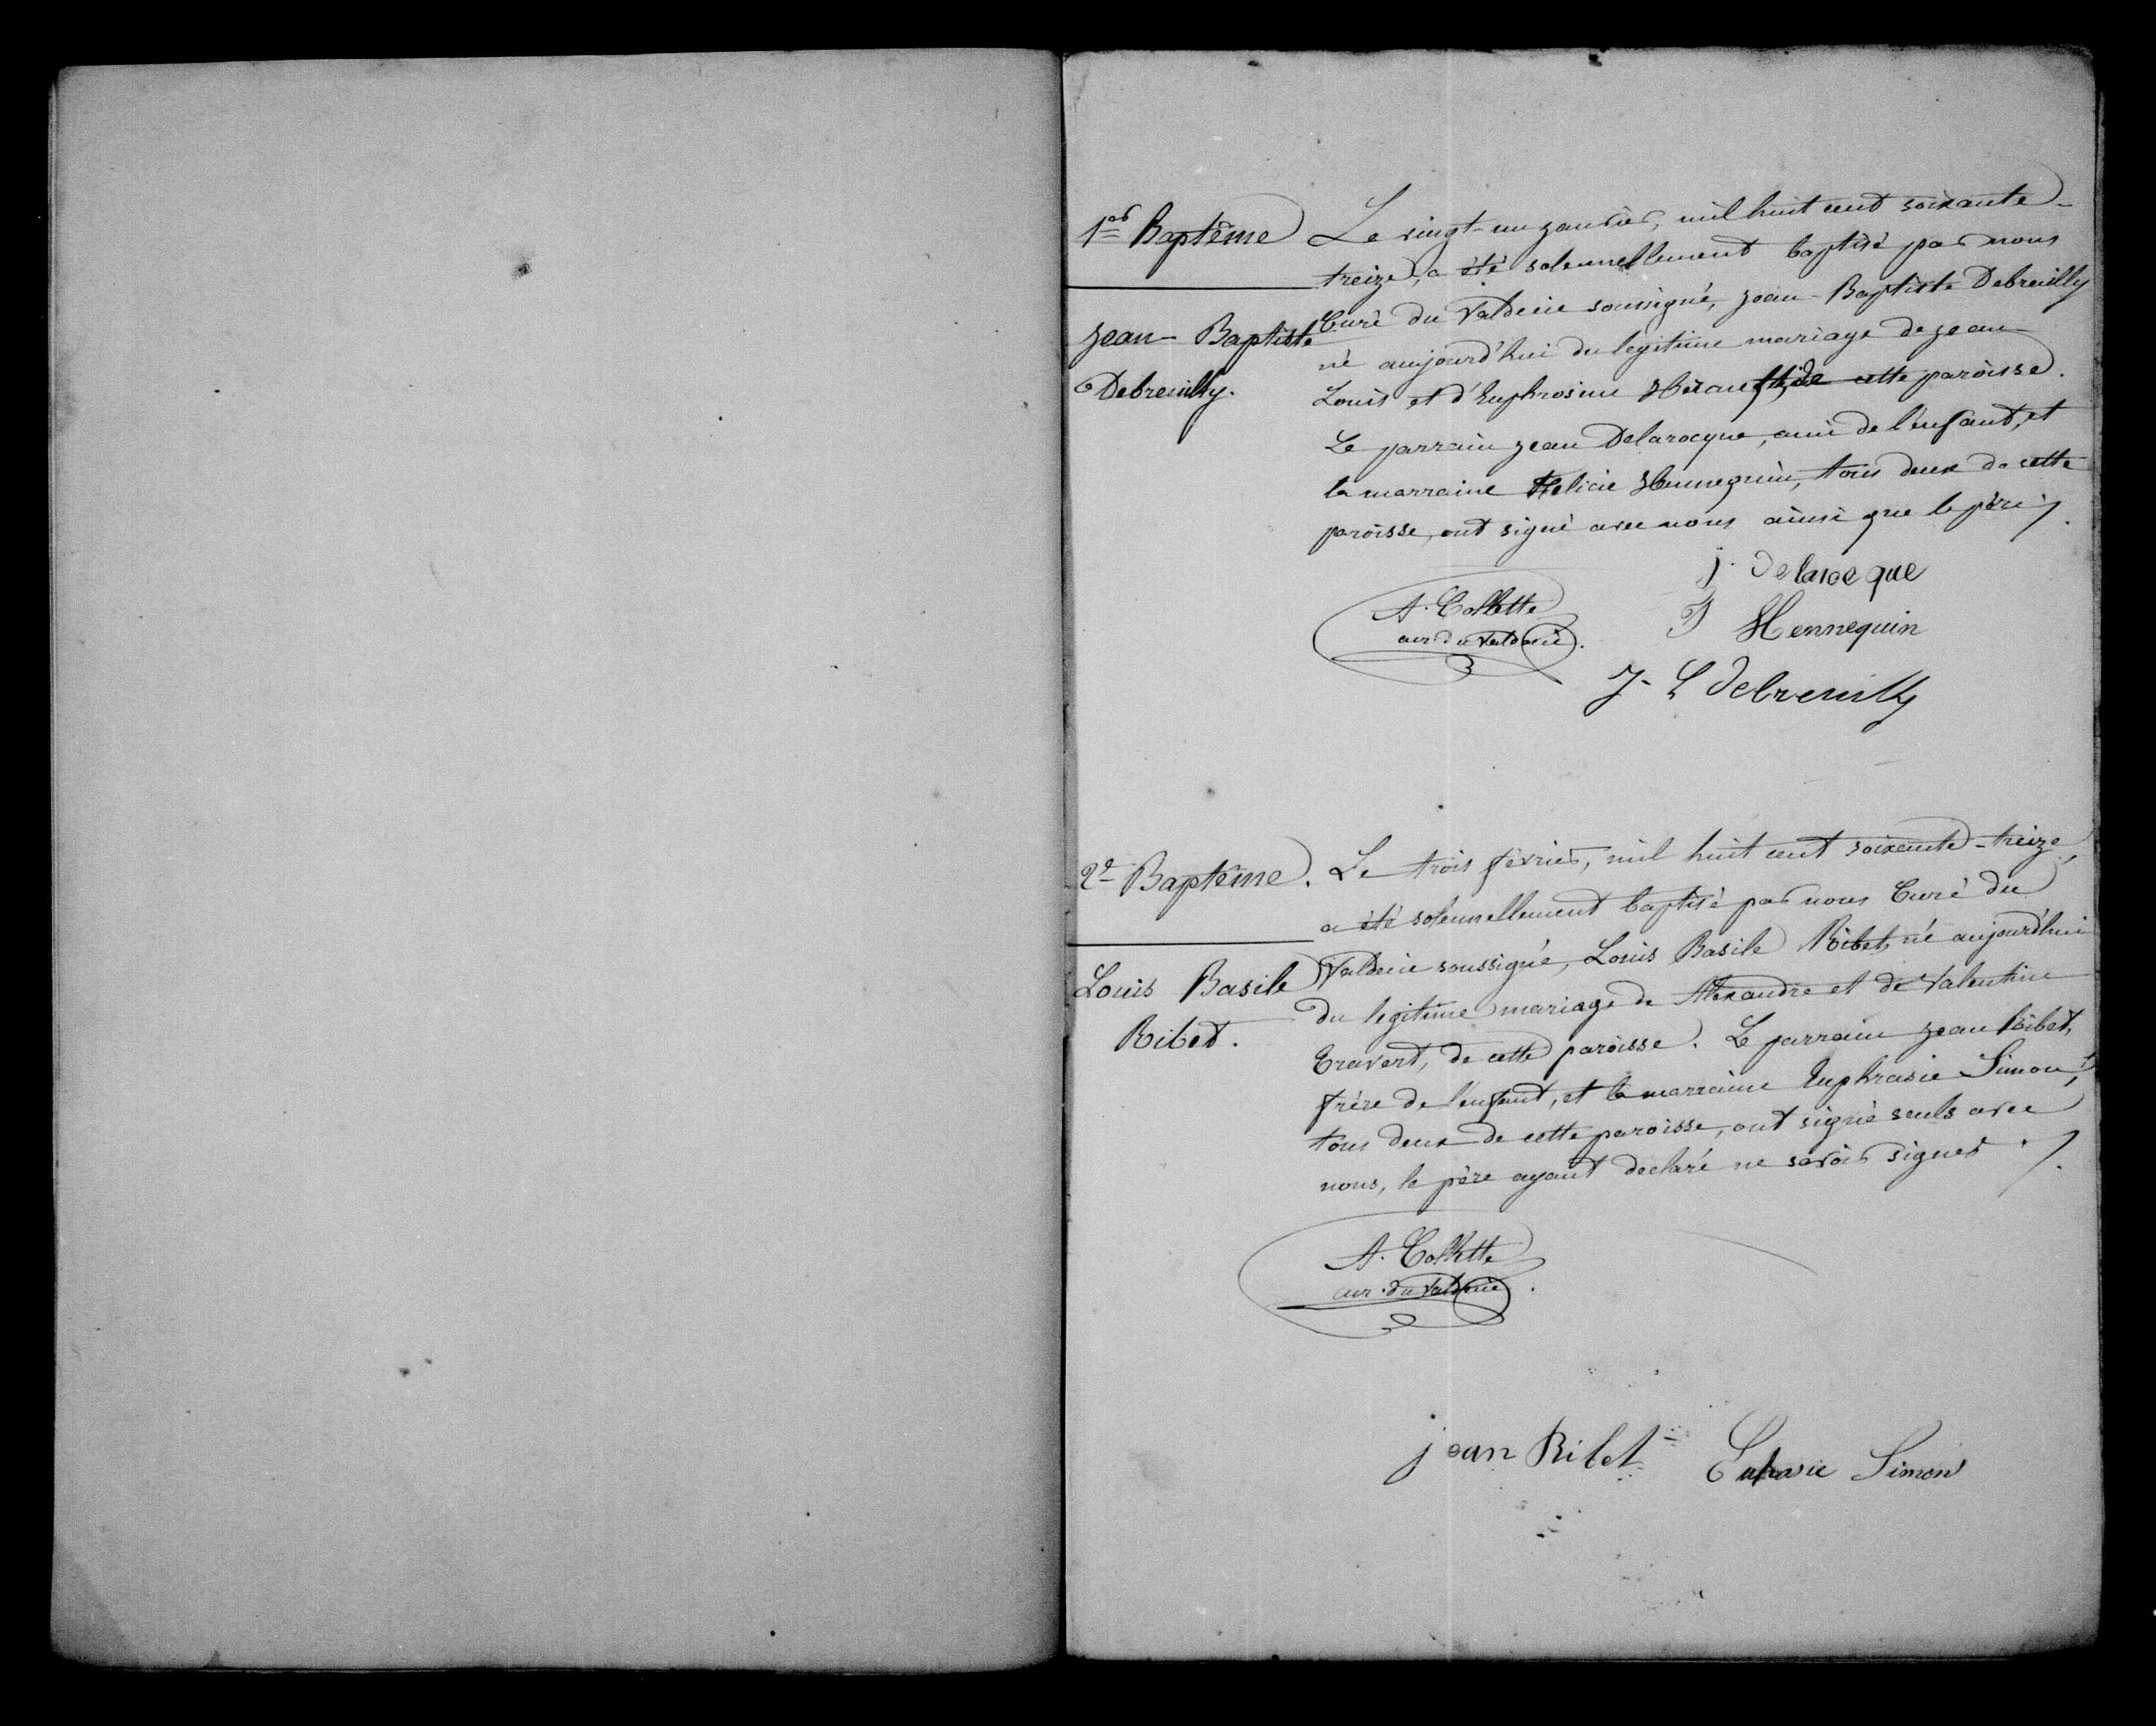 1er Baptême
Jean-Baptiste
Debreuilly.
Le vingt-un janvier, mil huit cent soixante-
treize, a été solennellement baptisé par nous
Curé du Valdécie soussigné, Jean-Baptiste Debreuilly
né aujourd'hui du legitime mariage de Jean
Louis et d'Euphrosine de cette paroisse.
Le parrain Jean Delarocque, ami de l'enfant, et
la marraine Felicie Hennequin, tous deux de cette
paroisse, ont signé avec nous ainsi que le père ./.
j. Delarocque
A. Collette
cur. du Valdécie.
F Hennequin
J. L Debreuilly
2e Baptême.
Louis Basile
Ribet.
Le trois février, mil huit cent soixante-treize,
a été solennellement baptisé par nous Curé du
Valdécie soussigné, Louis Basile Ribet, né aujourd'hui
du legitime mariage de Alexandre et de Valentine
Travert, de cette paroisse. Le parrain Jean Ribet,
frère de l'enfant, et la marraine Euphrasie Simon,
tous deux de cette paroisse, ont signé seuls avec
nous, le père ayant declaré ne savoir signer ./.
A. Collette
cur. du Valdécie.
jean Ribet Simon